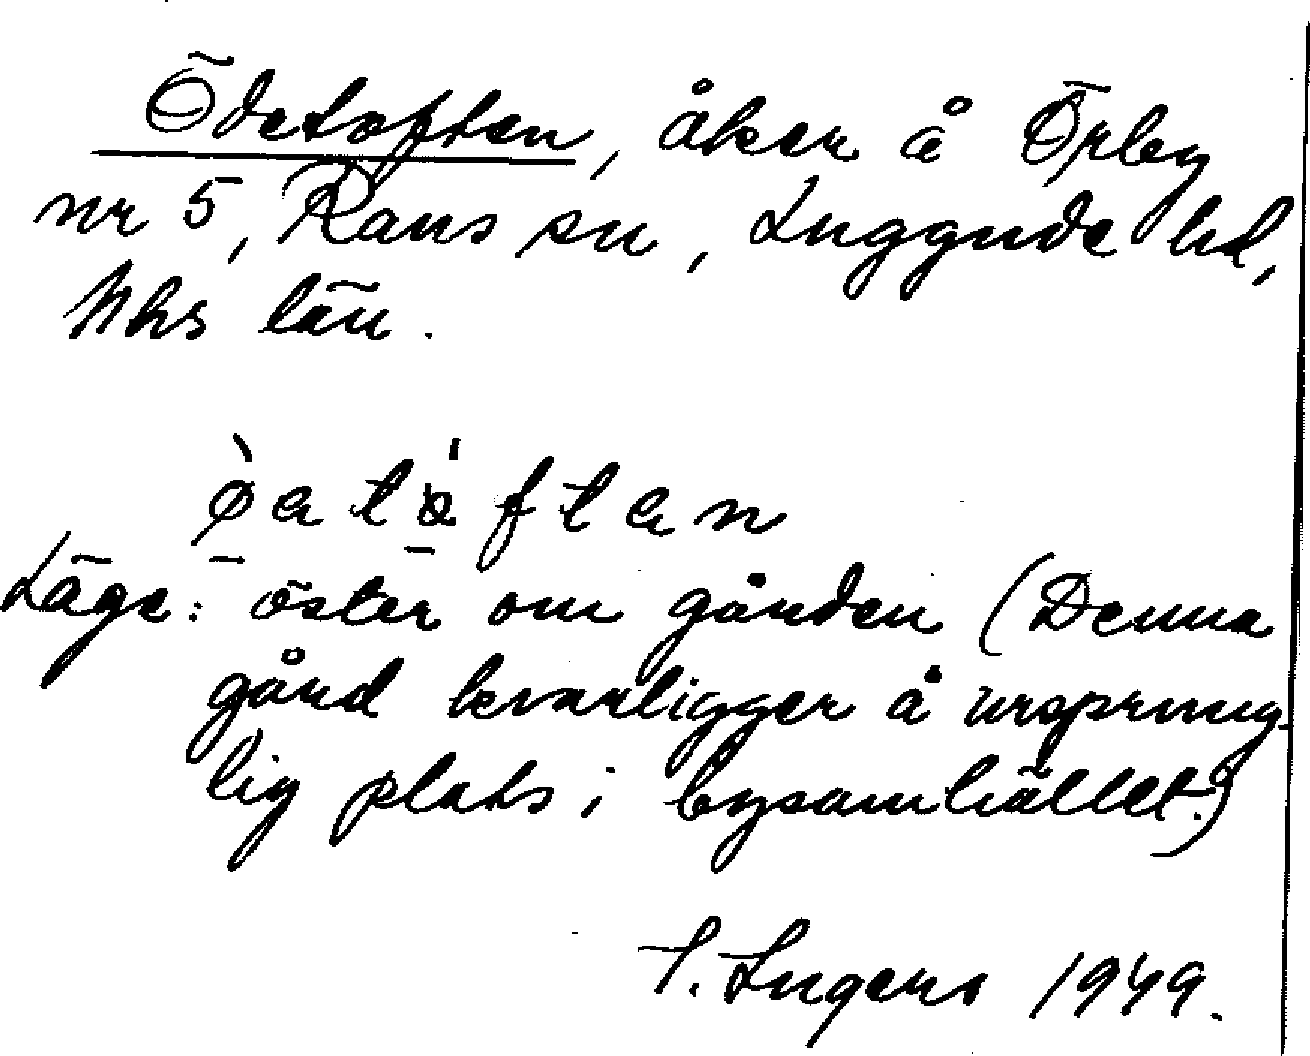 Ödetoften, åker å Örby
nr 5, Raus sn, Luggude hd,
Mhs län.
Läge: öster om gården (Denna
gård kvarligger å ursprung-
lig plats i bysamhället.)
I. Ingers 1949.